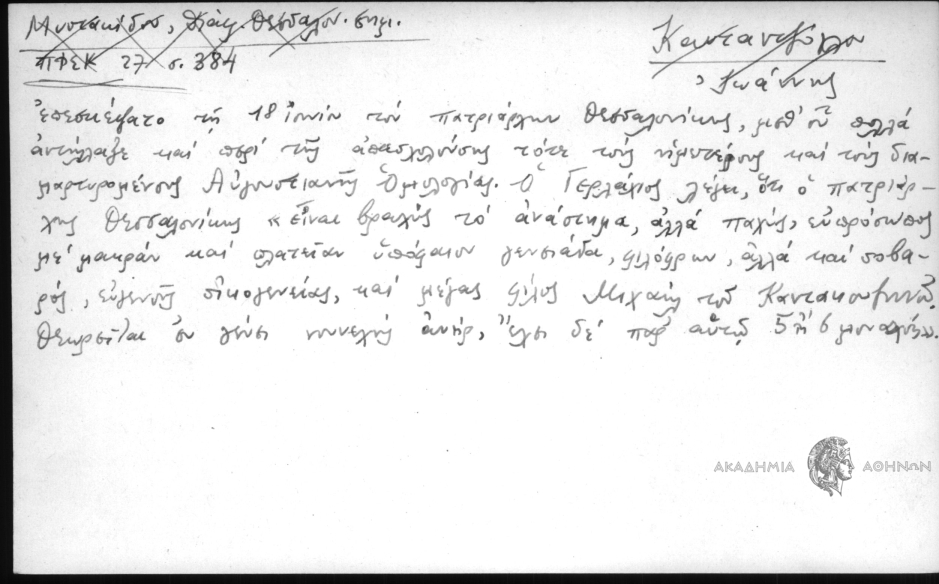 Μυστακίδου, Πατ. Θεσσαλον. σημ.
ΠΦΣΚ 27 σ. 384
Κανταντζόγλου
Ἰωάννης
ἐπεσκέψατο τῇ 18 Ἰουνίου τὸν πατριάρχην Θεσσαλονίκης, μεθ' οὗ πολλὰ
ἀντήλλαξε καὶ περὶ τῆς ἀπασχολούσης τότε τοὺς ἡμετέρους καὶ τοὺς δια-
μαρτυρομένους Αὐγουστιανῆς Ὁμολογίας. Ὁ Γερλάχιος λέγει, ὅτι ὁ πατριάρ-
χης Θεσσαλονίκης « εἶναι βραχὺς τὸ ἀνάστημα, ἀλλὰ παχύς, εὐπρόσωπος
μὲ μακρὰν καὶ πλατεῖαν γενειάδα, φιλόφρων, ἀλλὰ καὶ σοβα-
ρός, εὐγενοῦς οἰκογενείας, καὶ μέγας φίλος Μιχαὴλ τοῦ Καντακουζηνοῦ.
Θεωρεῖται ἐν γένει νουνεχὴς ἀνήρ, ἔχει δὲ παρ' αὐτῷ 5 ἢ 6 μοναχούς».
ΑΚΑΔΗΜΙΑ ΑΘΗΝΩΝ